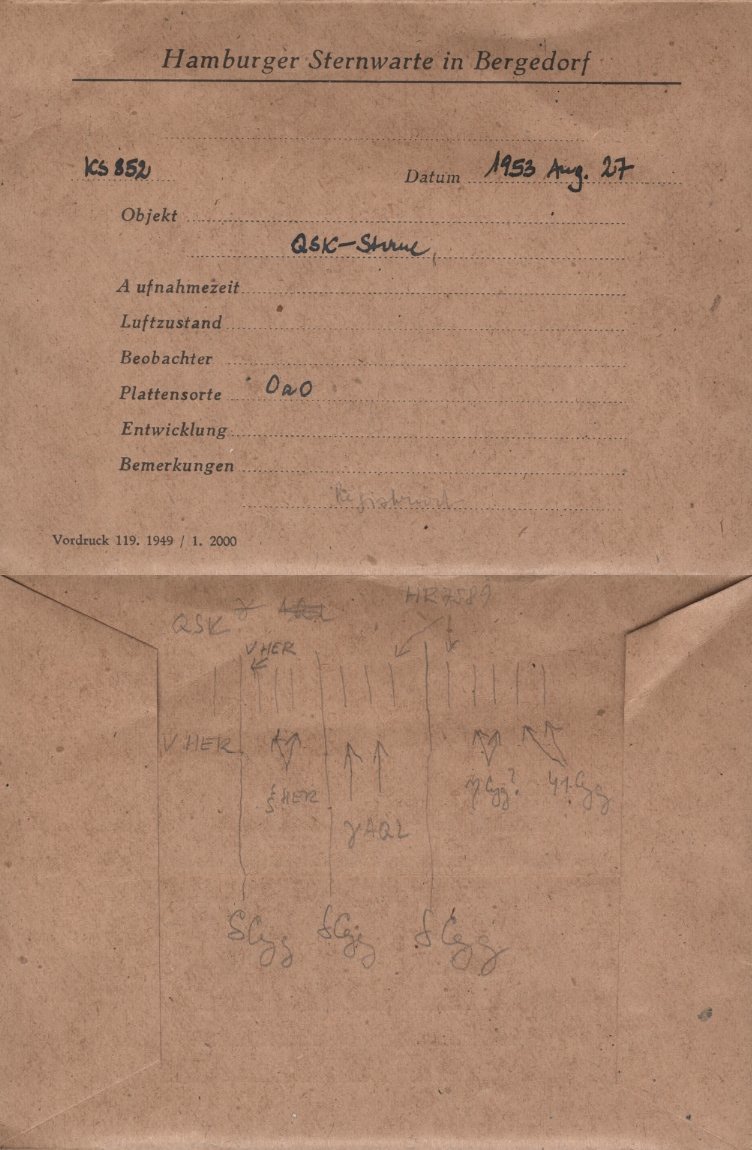 Hamburger Sternwarte in Bergedorf
KS 852
Datum 1953 Aug. 27
Objekt
QSK-Sterne
Aufnahmezeit
Luftzustand
Beobachter
Plattensorte OaO
Entwicklung
Bemerkungen
Registriert
Vordruck 119. 1949 / 1. 2000
HR7589
QSK
ν HER
ν HER
ξ HER
η Cyg? 41 Cyg
γ AQL
δ Cyg δ Cyg δ Cyg